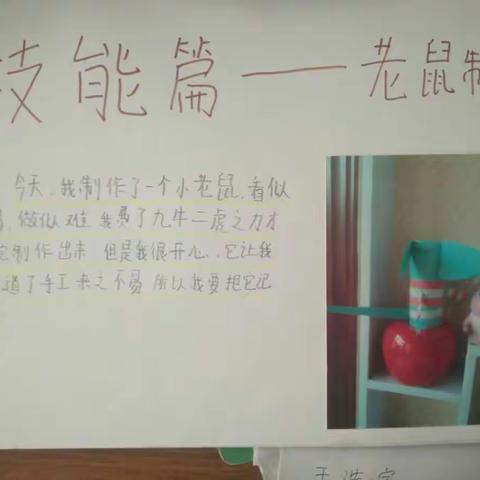 技能篇——老鼠制
今天,我制作了一个小老鼠,看似
,做似难 我费了九牛二虎之力才
它制作出来 但是我很开心,它让我
道了手工来之不易 所以我要把它记